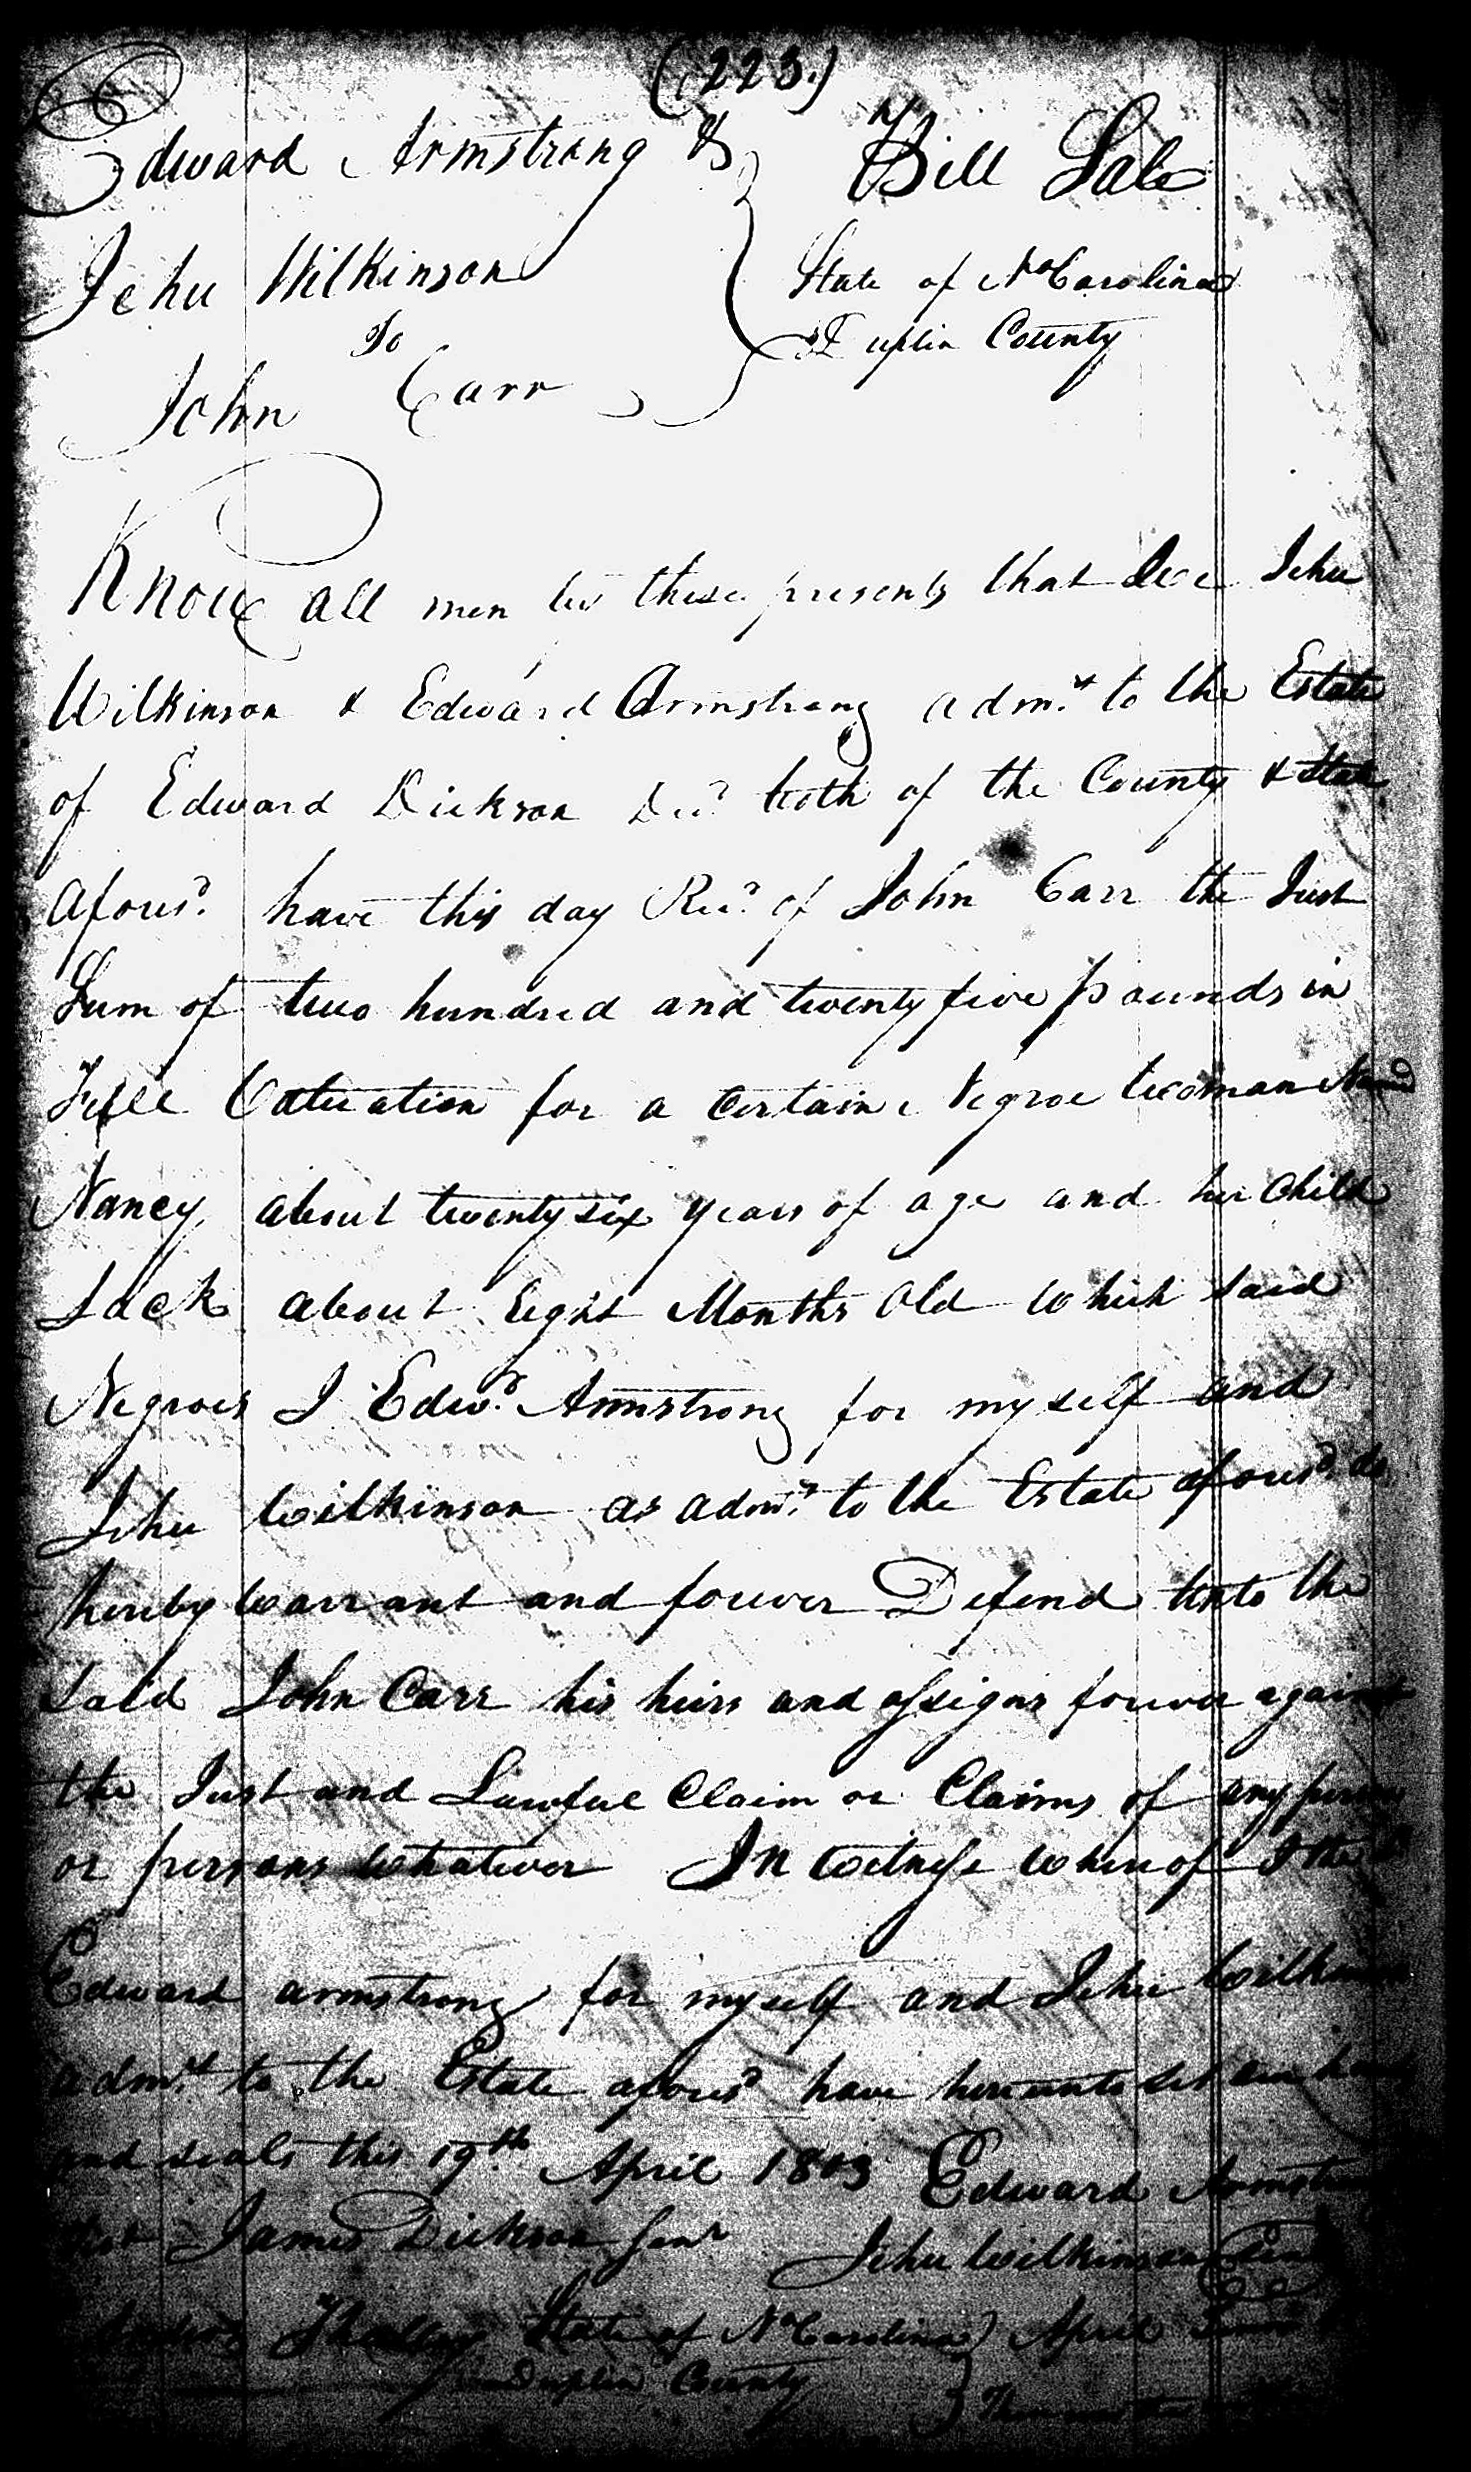 (223.)
Edward Armstrong &
Bill Sale
Jehu Wilkinson
State of No Carolina
To
Duplin County
John Carr
Know all men by these presents that Wee Jehu
Wilkinson & Edward Armstrong admrs to the Estate
of Edward Dickson Decd both of the County & State
aforesd. have this day Recd. of John Carr the Just
Sum of two hundred and twenty five pounds in
Full Valuation for a certain Negroe Woman Named
Nancy about twenty six years of age and her Child
Jack about Eight Months Old Which said
Negroes I Edwd. Armstrong for myself and
Jehu Wilkinson as admrs to the Estate aforesd do
hereby Warrant and forever Defend Unto the
said John Carr his heirs and assigns forever against
the Just and Lawful Claim or Claims of any person
or persons Whatever In Witness Whereof I the
Edward armstrong for myself and Jehu Wilkinson
admrs to the Estate aforesd have hereunto set our hands
and seals this 19th April 1803 Edward Armstrong
Test James Dickson Senr Jehu Wilkinson Seal
State of No Carolina April Term
Duplin County